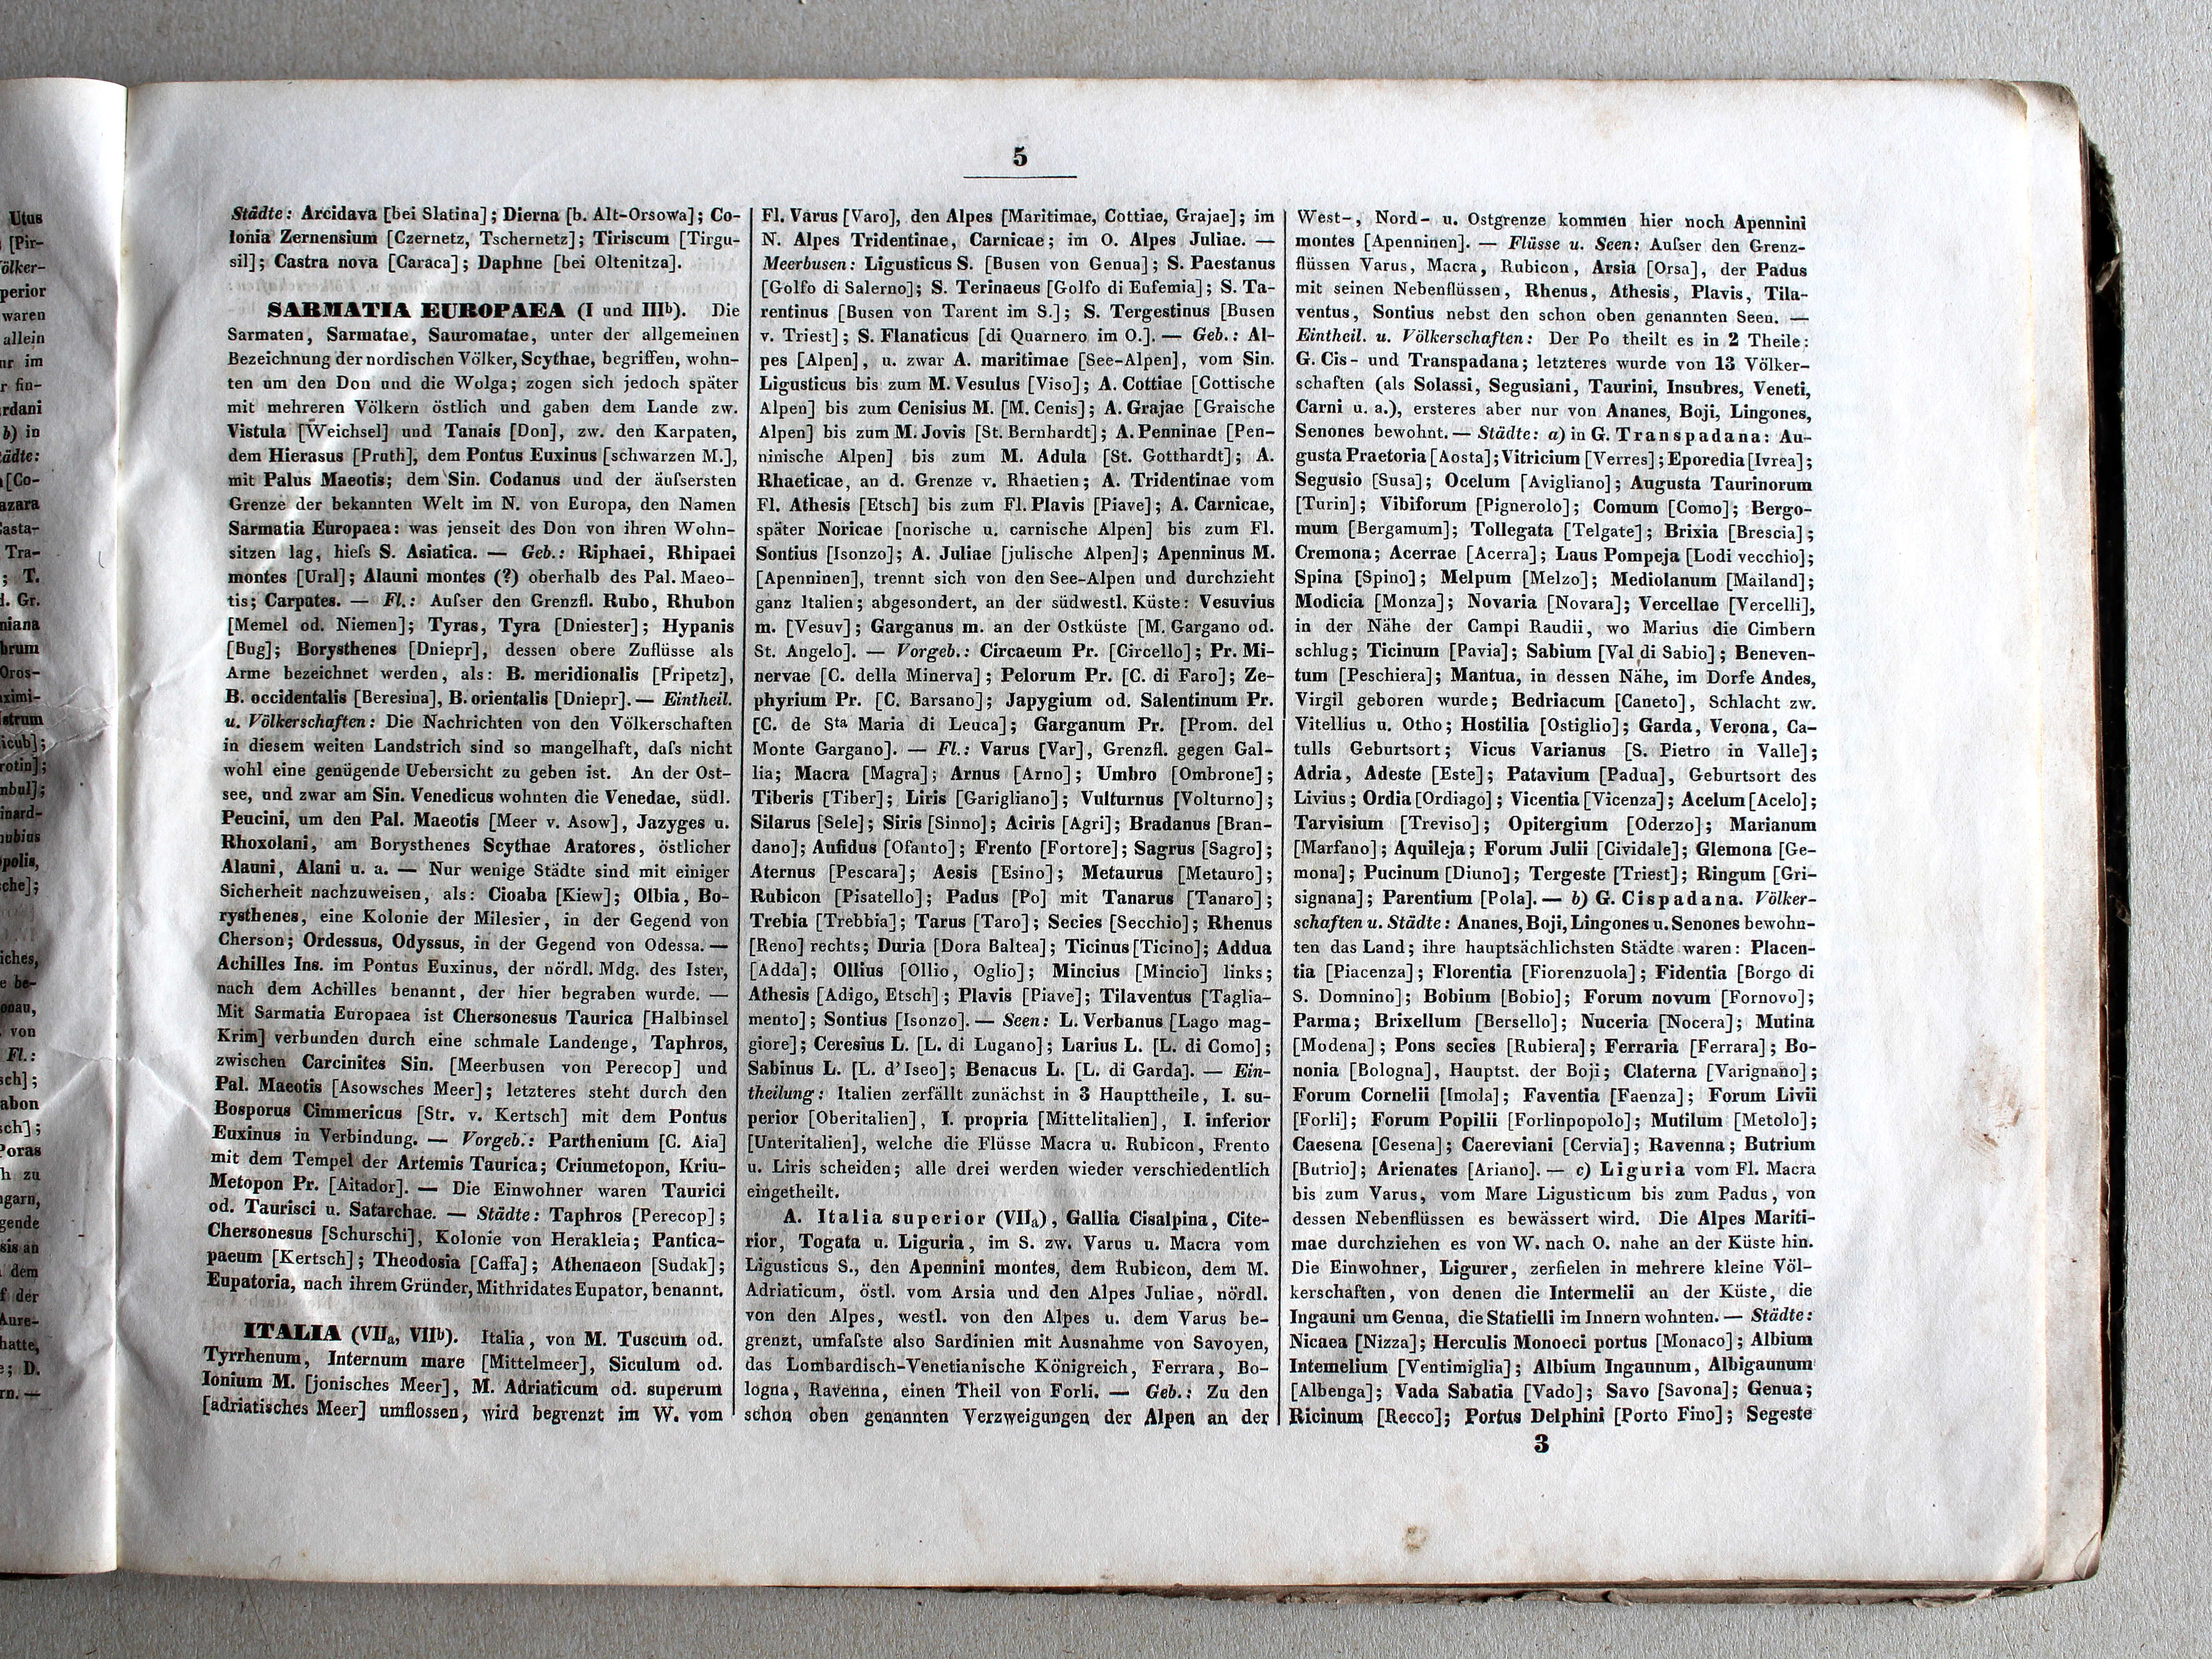 Utus
[Pir-
ölker-
perior
waren
allein
im
fin-
rdani
b) in
tädte:
[Co-
azara
Casta-
Tra-
; T.
d. Gr.
niana
brum
Oros-
ximi-
strum
icub];
rotin];
nbul];
inard-
nubius
polis,
che];
iches,
e be-
onau,
von
Fl.:
sch];
abon
sch];
Poras
h zu
ngarn,
gende
sis an
dem
f der
Aure-
hatte,
e; D.
rn. —
5
Städte: Arcidava [bei Slatina]; Dierna [b. Alt-Orsowa]; Co-
lonia Zernensium [Czernetz, Tschernetz]; Tiriscum [Tirgu-
sil]; Castra nova [Caraca]; Daphne [bei Oltenitza].
SARMATIA EUROPAEA (I und IIIb). Die
Sarmaten, Sarmatae, Sauromatae, unter der allgemeinen
Bezeichnung der nordischen Völker, Scythae, begriffen, wohn-
ten um den Don und die Wolga; zogen sich jedoch später
mit mehreren Völkern östlich und gaben dem Lande zw.
Vistula [Weichsel] und Tanais [Don], zw. den Karpaten,
dem Hierasus [Pruth], dem Pontus Euxinus [schwarzen M.],
mit Palus Maeotis; dem Sin. Codanus und der äufsersten
Grenze der bekannten Welt im N. von Europa, den Namen
Sarmatia Europaea: was jenseit des Don von ihren Wohn-
sitzen lag, hiefs S. Asiatica. — Geb.: Riphaei, Rhipaei
montes [Ural]; Alauni montes (?) oberhalb des Pal. Maeo-
tis; Carpates. — Fl.: Aufser den Grenzfl. Rubo, Rhubon
[Memel od. Niemen]; Tyras, Tyra [Dniester]; Hypanis
[Bug]; Borysthenes [Dniepr], dessen obere Zuflüsse als
Arme bezeichnet werden, als: B. meridionalis [Pripetz],
B. occidentalis [Beresina], B. orientalis [Dniepr]. — Eintheil.
u. Völkerschaften: Die Nachrichten von den Völkerschaften
in diesem weiten Landstrich sind so mangelhaft, dafs nicht
wohl eine genügende Uebersicht zu geben ist. An der Ost-
see, und zwar am Sin. Venedicus wohnten die Venedae, südl.
Peucini, um den Pal. Maeotis [Meer v. Asow], Jazyges u.
Rhoxolani, am Borysthenes Scythae Aratores, östlicher
Alauni, Alani u. a. — Nur wenige Städte sind mit einiger
Sicherheit nachzuweisen, als: Cioaba [Kiew]; Olbia, Bo-
rysthenes, eine Kolonie der Milesier, in der Gegend von
Cherson; Ordessus, Odyssus, in der Gegend von Odessa. —
Achilles Ins. im Pontus Euxinus, der nördl. Mdg. des Ister,
nach dem Achilles benannt, der hier begraben wurde. —
Mit Sarmatia Europaea ist Chersonesus Taurica [Halbinsel
Krim] verbunden durch eine schmale Landenge, Taphros,
zwischen Carcinites Sin. [Meerbusen von Perecop] und
Pal. Maeotis [Asowsches Meer]; letzteres steht durch den
Bosporus Cimmericus [Str. v. Kertsch] mit dem Pontus
Euxinus in Verbindung. — Vorgeb.: Parthenium [C. Aia]
mit dem Tempel der Artemis Taurica; Criumetopon, Kriu-
Metopon Pr. [Aitador]. — Die Einwohner waren Taurici
od. Taurisci u. Satarchae. — Städte: Taphros [Perecop];
Chersonesus [Schurschi], Kolonie von Herakleia; Pantica-
paeum [Kertsch]; Theodosia [Caffa]; Athenaeon [Sudak];
Eupatoria, nach ihrem Gründer, Mithridates Eupator, benannt.
ITALIA (VIIa, VIIb). Italia, von M. Tuscum od.
Tyrrhenum, Internum mare [Mittelmeer], Siculum od.
Ionium M. [jonisches Meer], M. Adriaticum od. superum
[adriatisches Meer] umflossen, wird begrenzt im W. vom
Fl. Varus [Varo], den Alpes [Maritimae, Cottiae, Grajae]; im
N. Alpes Tridentinae, Carnicae; im O. Alpes Juliae. —
Meerbusen: Ligusticus S. [Busen von Genua]; S. Paestanus
[Golfo di Salerno]; S. Terinaeus [Golfo di Eufemia]; S. Ta-
rentinus [Busen von Tarent im S.]; S. Tergestinus [Busen
v. Triest]; S. Flanaticus [di Quarnero im O.]. — Geb.: Al-
pes [Alpen], u. zwar A. maritimae [See-Alpen], vom Sin.
Ligusticus bis zum M. Vesulus [Viso]; A. Cottiae [Cottische
Alpen] bis zum Cenisius M. [M. Cenis]; A. Grajae [Graische
Alpen] bis zum M. Jovis [St. Bernhardt]; A. Penninae [Pen-
ninische Alpen] bis zum M. Adula [St. Gotthardt]; A.
Rhaeticae, an d. Grenze v. Rhaetien; A. Tridentinae vom
Fl. Athesis [Etsch] bis zum Fl. Plavis [Piave]; A. Carnicae,
später Noricae [norische u. carnische Alpen] bis zum Fl.
Sontius [Isonzo]; A. Juliae [julische Alpen]; Apenninus M.
[Apenninen], trennt sich von den See-Alpen und durchzieht
ganz Italien; abgesondert, an der südwestl. Küste: Vesuvius
m. [Vesuv]; Garganus m. an der Ostküste [M. Gargano od.
St. Angelo]. — Vorgeb.: Circaeum Pr. [Circello]; Pr. Mi-
nervae [C. della Minerva]; Pelorum Pr. [C. di Faro]; Ze-
phyrium Pr. [C. Barsano]; Japygium od. Salentinum Pr.
[C. de Sta Maria di Leuca]; Garganum Pr. [Prom. del
Monte Gargano]. — Fl.: Varus [Var], Grenzfl. gegen Gal-
lia; Macra [Magra]; Arnus [Arno]; Umbro [Ombrone];
Tiberis [Tiber]; Liris [Garigliano]; Vulturnus [Volturno];
Silarus [Sele]; Siris [Sinno]; Aciris [Agri]; Bradanus [Bran-
dano]; Aufidus [Ofanto]; Frento [Fortore]; Sagrus [Sagro];
Aternus [Pescara]; Aesis [Esino]; Metaurus [Metauro];
Rubicon [Pisatello]; Padus [Po] mit Tanarus [Tanaro];
Trebia [Trebbia]; Tarus [Taro]; Secies [Secchio]; Rhenus
[Reno] rechts; Duria [Dora Baltea]; Ticinus [Ticino]; Addua
[Adda]; Ollius [Ollio, Oglio]; Mincius [Mincio] links;
Athesis [Adigo, Etsch]; Plavis [Piave]; Tilaventus [Taglia-
mento]; Sontius [Isonzo]. — Seen: L. Verbanus [Lago mag-
giore]; Ceresius L. [L. di Lugano]; Larius L. [L. di Como];
Sabinus L. [L. d' Iseo]; Benacus L. [L. di Garda]. — Ein-
theilung: Italien zerfällt zunächst in 3 Haupttheile, I. su-
perior [Oberitalien], I. propria [Mittelitalien], I. inferior
[Unteritalien], welche die Flüsse Macra u. Rubicon, Frento
u. Liris scheiden; alle drei werden wieder verschiedentlich
eingetheilt.
A. Italia superior (VIIa), Gallia Cisalpina, Cite-
rior, Togata u. Liguria, im S. zw. Varus u. Macra vom
Ligusticus S., den Apennini montes, dem Rubicon, dem M.
Adriaticum, östl. vom Arsia und den Alpes Juliae, nördl.
von den Alpes, westl. von den Alpes u. dem Varus be-
grenzt, umfafste also Sardinien mit Ausnahme von Savoyen,
das Lombardisch-Venetianische Königreich, Ferrara, Bo-
logna, Ravenna, einen Theil von Forli. — Geb.: Zu den
schon oben genannten Verzweigungen der Alpen an der
West-, Nord- u. Ostgrenze kommen hier noch Apennini
montes [Apenninen]. — Flüsse u. Seen: Aufser den Grenz-
flüssen Varus, Macra, Rubicon, Arsia [Orsa], der Padus
mit seinen Nebenflüssen, Rhenus, Athesis, Plavis, Tila-
ventus, Sontius nebst den schon oben genannten Seen. —
Eintheil. u. Völkerschaften: Der Po theilt es in 2 Theile:
G. Cis- und Transpadana; letzteres wurde von 13 Völker-
schaften (als Solassi, Segusiani, Taurini, Insubres, Veneti,
Carni u. a.), ersteres aber nur von Ananes, Boji, Lingones,
Senones bewohnt. — Städte: a) in G. Transpadana: Au-
gusta Praetoria [Aosta]; Vitricium [Verres]; Eporedia [Ivrea];
Segusio [Susa]; Ocelum [Avigliano]; Augusta Taurinorum
[Turin]; Vibiforum [Pignerolo]; Comum [Como]; Bergo-
mum [Bergamum]; Tollegata [Telgate]; Brixia [Brescia];
Cremona; Acerrae [Acerra]; Laus Pompeja [Lodi vecchio];
Spina [Spino]; Melpum [Melzo]; Mediolanum [Mailand];
Modicia [Monza]; Novaria [Novara]; Vercellae [Vercelli],
in der Nähe der Campi Raudii, wo Marius die Cimbern
schlug; Ticinum [Pavia]; Sabium [Val di Sabio]; Beneven-
tum [Peschiera]; Mantua, in dessen Nähe, im Dorfe Andes,
Virgil geboren wurde; Bedriacum [Caneto], Schlacht zw.
Vitellius u. Otho; Hostilia [Ostiglio]; Garda, Verona, Ca-
tulls Geburtsort; Vicus Varianus [S. Pietro in Valle];
Adria, Adeste [Este]; Patavium [Padua], Geburtsort des
Livius; Ordia [Ordiago]; Vicentia [Vicenza]; Acelum [Acelo];
Tarvisium [Treviso]; Opitergium [Oderzo]; Marianum
[Marfano]; Aquileja; Forum Julii [Cividale]; Glemona [Ge-
mona]; Pucinum [Diuno]; Tergeste [Triest]; Ringum [Gri-
signana]; Parentium [Pola]. — b) G. Cispadana. Völker-
schaften u. Städte: Ananes, Boji, Lingones u. Senones bewohn-
ten das Land; ihre hauptsächlichsten Städte waren: Placen-
tia [Piacenza]; Florentia [Fiorenzuola]; Fidentia [Borgo di
S. Domnino]; Bobium [Bobio]; Forum novum [Fornovo];
Parma; Brixellum [Bersello]; Nuceria [Nocera]; Mutina
[Modena]; Pons secies [Rubiera]; Ferraria [Ferrara]; Bo-
nonia [Bologna], Hauptst. der Boji; Claterna [Varignano];
Forum Cornelii [Imola]; Faventia [Faenza]; Forum Livii
[Forli]; Forum Popilii [Forlinpopolo]; Mutilum [Metolo];
Caesena [Cesena]; Caereviani [Cervia]; Ravenna; Butrium
[Butrio]; Arienates [Ariano]. — c) Liguria vom Fl. Macra
bis zum Varus, vom Mare Ligusticum bis zum Padus, von
dessen Nebenflüssen es bewässert wird. Die Alpes Mariti-
mae durchziehen es von W. nach O. nahe an der Küste hin.
Die Einwohner, Ligurer, zerfielen in mehrere kleine Völ-
kerschaften, von denen die Intermelii an der Küste, die
Ingauni um Genua, die Statielli im Innern wohnten. — Städte:
Nicaea [Nizza]; Herculis Monoeci portus [Monaco]; Albium
Intemelium [Ventimiglia]; Albium Ingaunum, Albigaunum
[Albenga]; Vada Sabatia [Vado]; Savo [Savona]; Genua;
Ricinum [Recco]; Portus Delphini [Porto Fino]; Segeste
3